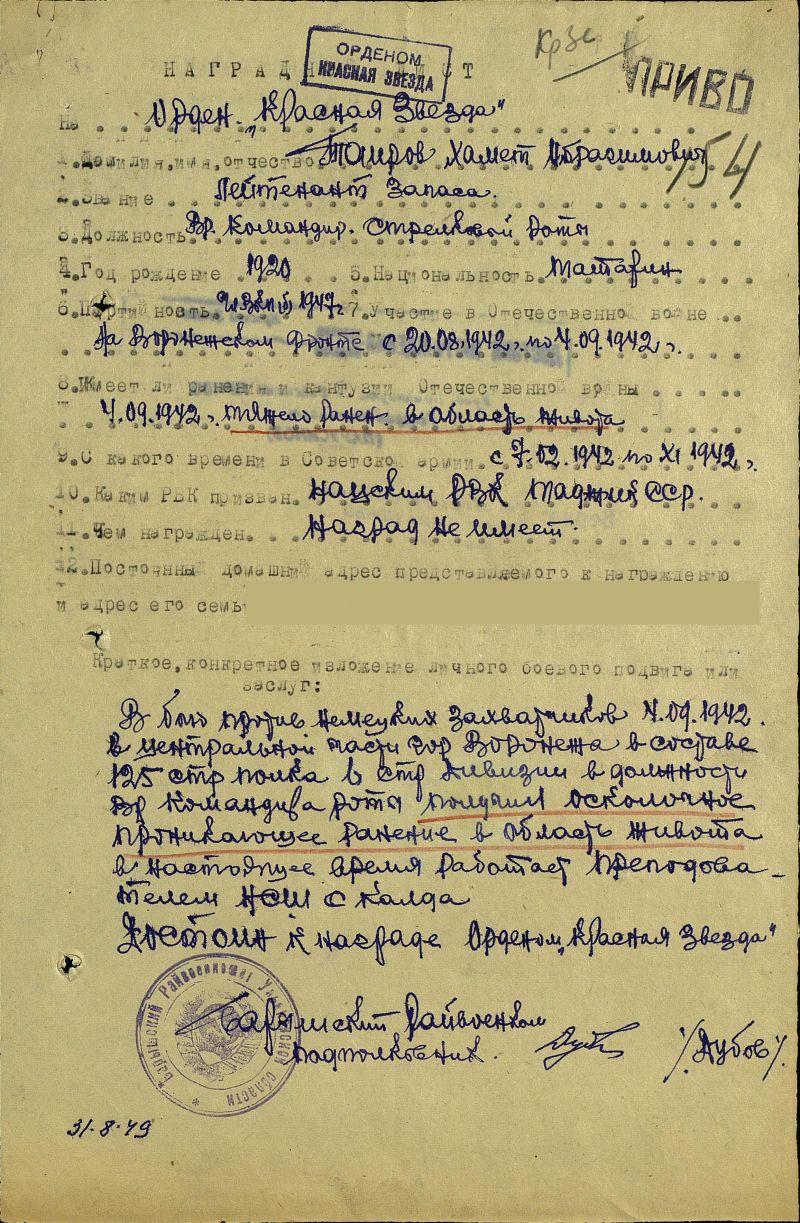 ОРДЕНОМ
КРАСНАЯ ЗВЕЗДА
ПРИВО
НАГРАДН СТ
На Орден „Красная Звезда"
154
1.Фамилия,имя,отчество. Таиров Хамет Ибрагимович
2.Звание Лейтенант Запаса.
3.Должность Вр. Командир. Стрелковой Роты
4.Год рождение 1920 5.Национальность Татарин
6.Партийность. 1947г. 7.Участие в Отечественной войне
На Воронежском Фронте с 20.08.1942г. по 4.09.1942г.
8.Имеет ли ранения и кантузии Отечественной войны
4.09.1942г. тяжело ранен. в область живота
9.С какого времени в Советской армии. с 7.02.1942 по XI 1942г.
10.Каким РВК призван. РВК Таджик ССР.
11.Чем награжден. Наград не имеет.
12.Постоянный домашний адрес представляемого к награждению
и адрес его семь
Краткое,конкретное изложение личного боевого подвига или
заслуг:
В бою против немецких захватчиков 4.09.1942.
в центральной части гор Воронежа в составе
125 стр полка в стр дивизии в должности
Вр Командира роты получил осколочное
проникающее ранение в область живота
в настоящее время работает преподова-
телем НСШ с Калда
Достоин к награде Орденом „Красная Звезда"
Барышский Райвоенкомат Ульяновской области
Барышский Райвоенком
подполковник. /Дубов/.
31-8-49